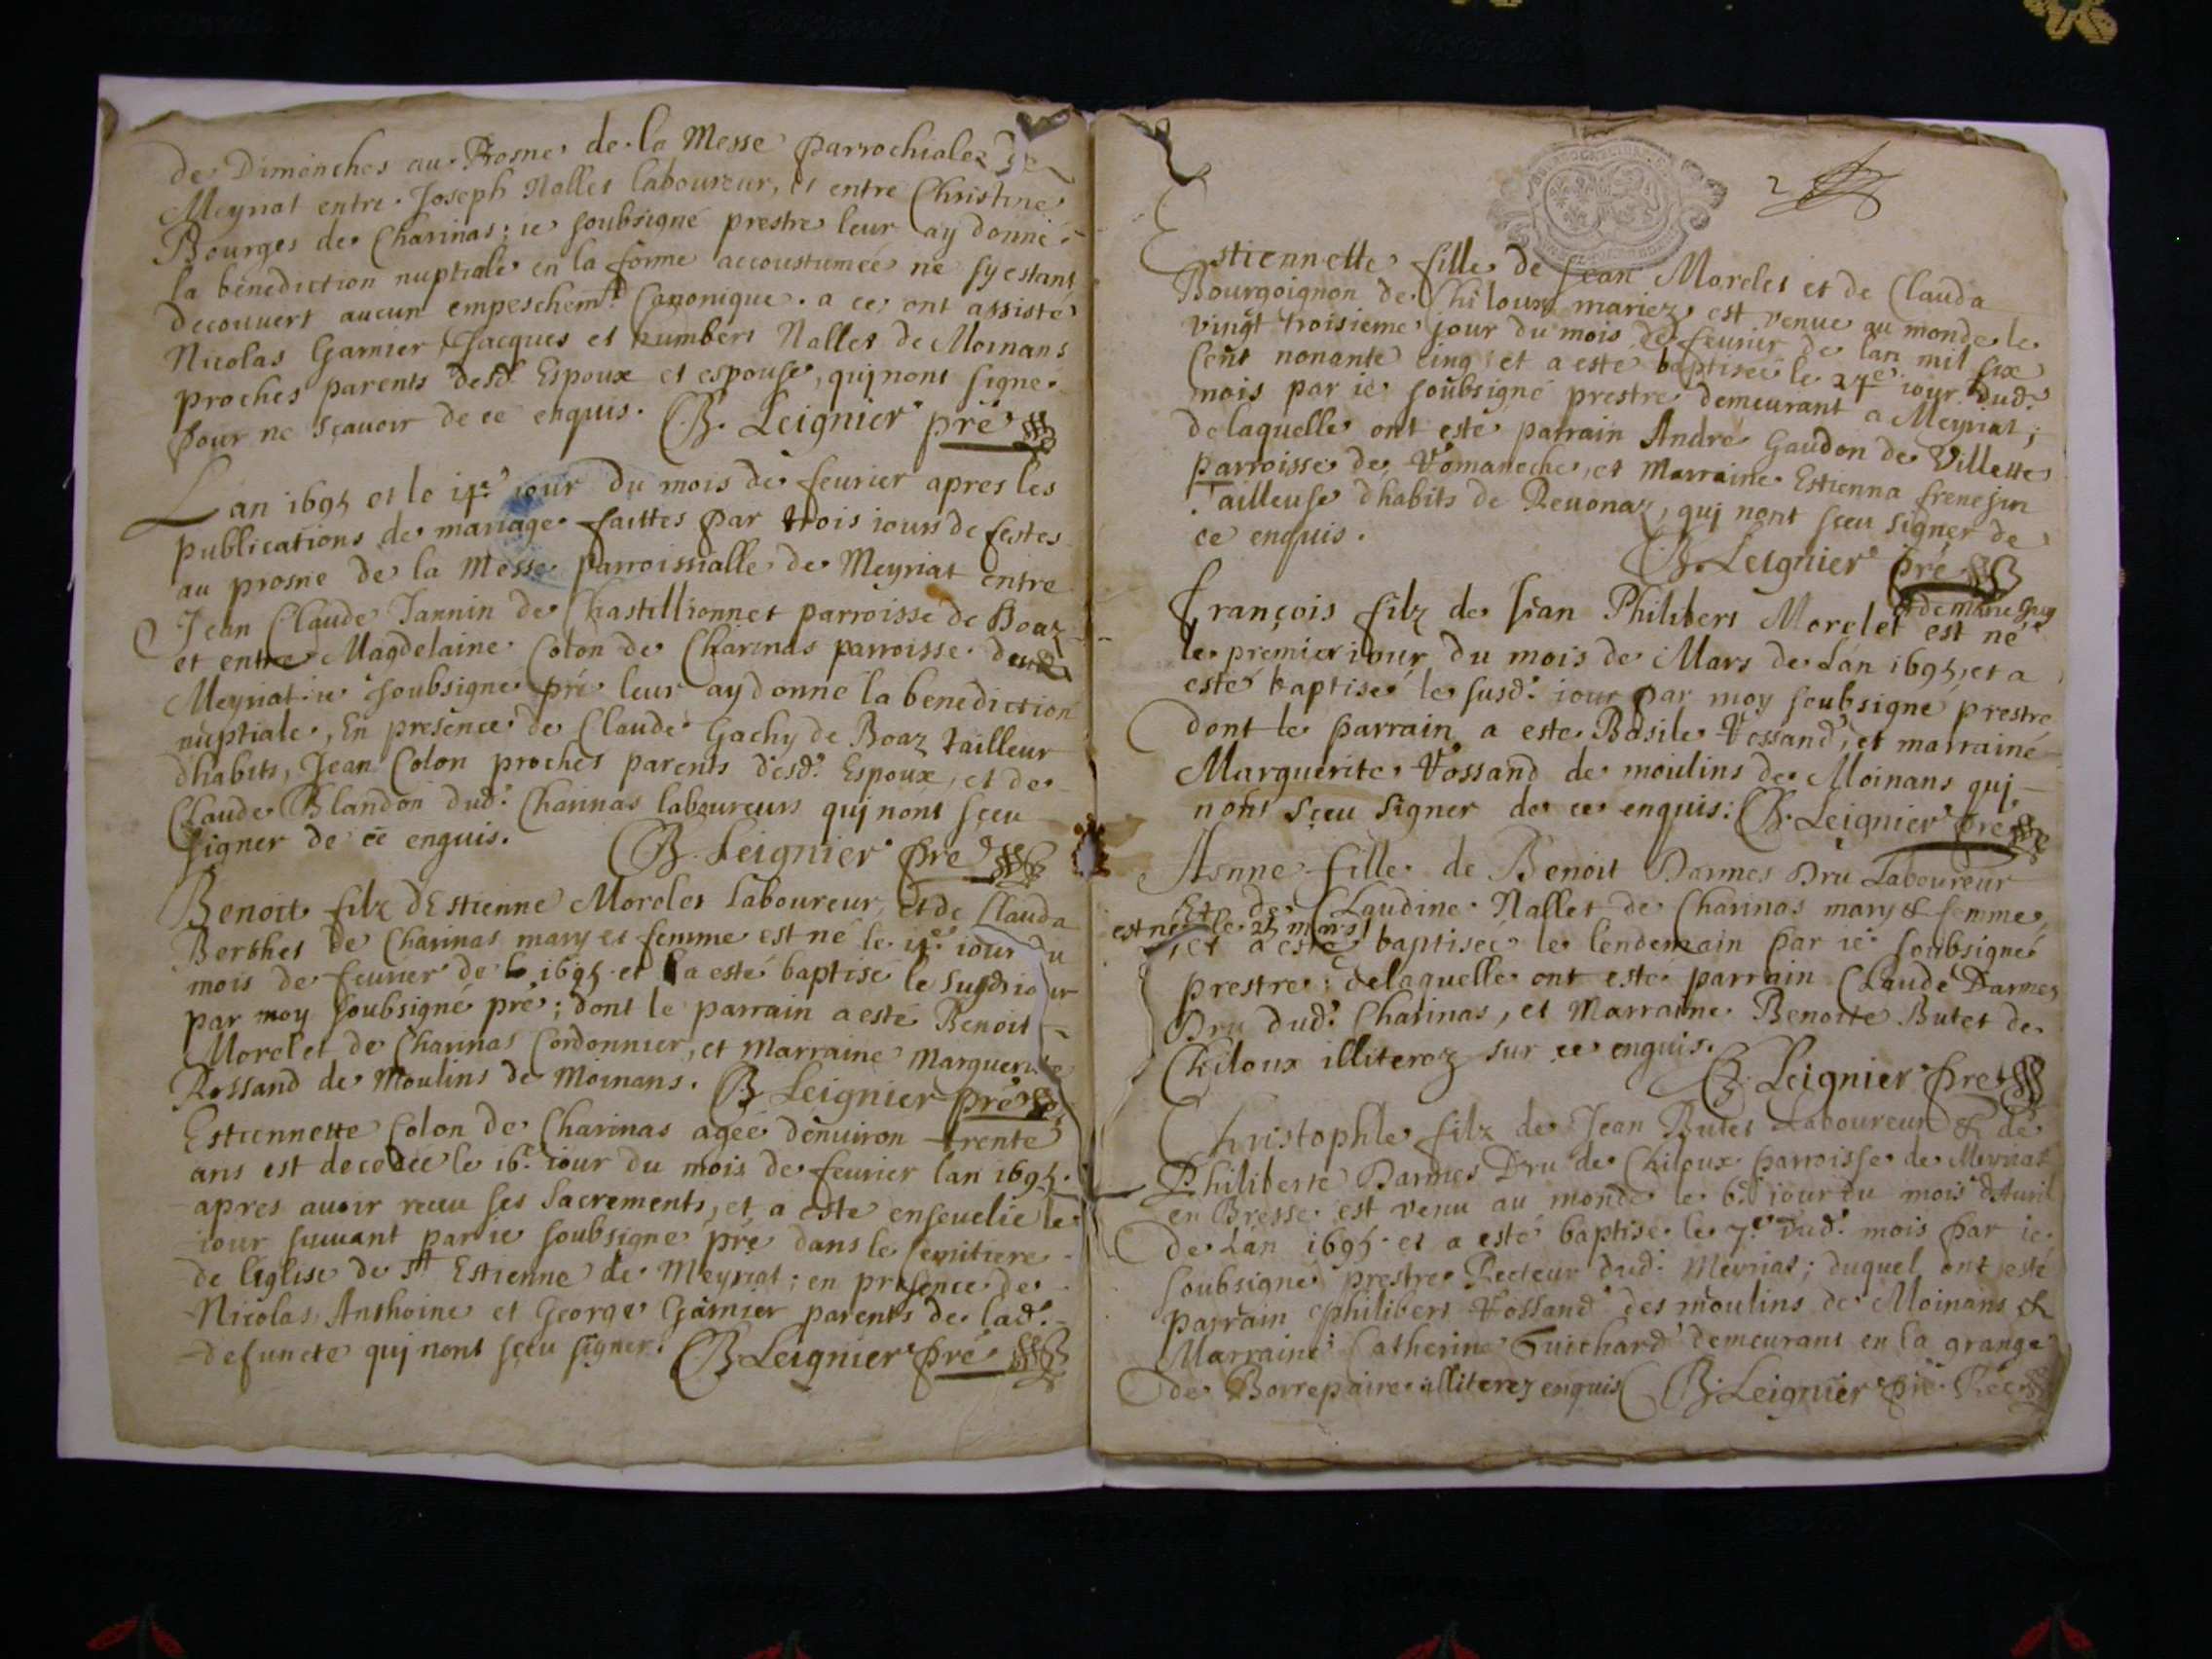 de Dimenches au Prosne de la Messe parrochiale de
Meyriat entre Joseph Nallet laboureur, et entre Christine
Bourges de Charinas; ie soubsigné prestre leur ay donné
la benediction nuptiale en la forme accoustumée ne sy estant
decouuert aucun empeschemt. Canonique. a ce ont assisté
Nicolas Garnier, Jacques et humbert Nallet de Moinans
proches parents desd. Espoux et espouse, qui nont signé
pour ne sçauoir de ce enquis. B. Leignier pre
Lan 1695 et le iour du mois de feurier apres les
publications de mariage faittes par trois iours de festes
au prosne de la Messe parroissialle de Meyriat entre
Jean Claude Jannin de Chastillionnet parroisse de Boaz
et entre Magdelaine Colon de Charinas parroisse dud.
Meyriat ie soubsigne pre leur ay donne la benediction
nuptiale, En presence de Claude Gachy de Boaz tailleur
dhabits, Jean Colon proches parents desd. Espoux, et de
Claude Blandon dud. Charinas laboureurs qui nont sçeu
signer de ce enquis. B. Leignier pre
Benoit filz dEstienne Morelet laboureur, et de Clauda
Berthet de Charinas mary et femme est né le iour du
mois de feurier de 1695 et a esté baptisé le susd. iour
par moy soubsigné pre; dont le parrain a esté Benoit
Morelet de Charinas Cordonnier, et Marraine Marguerite
Rossand de Moulins de Moinans. B. Leignier pre
Estiennette Colon de Charinas agée denuiron trente
ans est decedée le 16. iour du mois de feurier lan 1695.
apres auoir receu ses Sacrements, et a esté enseuelie le
iour suiuant par ie soubsigné pre dans le semitiere
de leglise de St Estienne de Meyriat; en presence de
Nicolas, Anthoine et George Garnier parents de lad.
defuncte qui nont sçeu signer. B. Leignier pre
2
Estiennette fille de Jean Morelet et de Clauda
Bourgoignon de Chiloux mariez est venue au monde le
vingt troisieme jour du mois de feurier de lan mil six
Cent nonante cinq et a esté baptisée le 27e iour dud.
mois par ie soubsigné prestre demeurant a Meyriat;
delaquelle ont esté parrain André Gaudon de Villette
parroisse de Romaneche, et Marraine Estienna
Tailleuse dhabits de Reuonaz, qui nont sçeu signer de
ce enquis.
B. Leignier pre
et de marie
François filz de Jean Philibert Morelet est né
le premier iour du mois de Mars de Lan 1695, et a
esté baptisé le susd. iour par moy soubsigné prestre
dont le parrain a este Basile Vossand, et marraine
Marguerite Vossand de moulins de Moinans qui
nont sçeu signer de ce enquis: B. Leignier pre
Anne fille de Benoit Darmes Dru Laboureur
Et de Claudine Nallet de Charinas mary & femme,
est née le 25 mars
et a esté baptisée le lendemain par ie soubsigné
prestre; delaquelle ont este parrain Claude Darmes
Dru dud. Charinas, et Marraine Benoite Butet de
Chiloux illiterez sur ce enquis.
B. Leignier pre
Christophle filz de Jean Butet Laboureur & de
Philiberte Darmes Dru de Chiloux parroisse de Meyriat
en Bresse est venu au monde le 6. iour du mois dAuril
de Lan 1695 et a esté baptisé le 7e dud. mois par ie
soubsigné prestre Recteur dud. Meyriat; duquel ont esté
parrain Philibert Vossand des moulins de Moinans &
Marraine Catherine Guichard demeurant en la grange
de Borrepaire illiterez enquis B. Leignier pre Rec